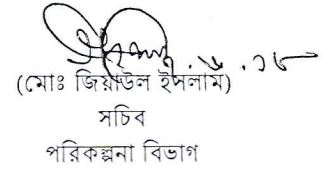 (মোঃ জিয়াউল ইসলাম)
সচিব
পরিকল্পনা বিভাগ